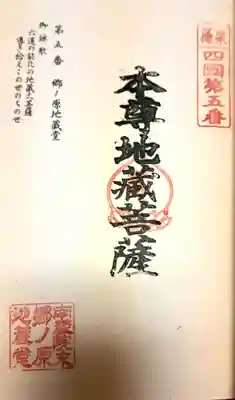 四國第五番
本尊地蔵菩薩
第五番 郷ノ原地蔵堂
御詠歌
六道の能化の地蔵大菩薩
導き給えこの世のちの世
郷ノ原
地蔵堂